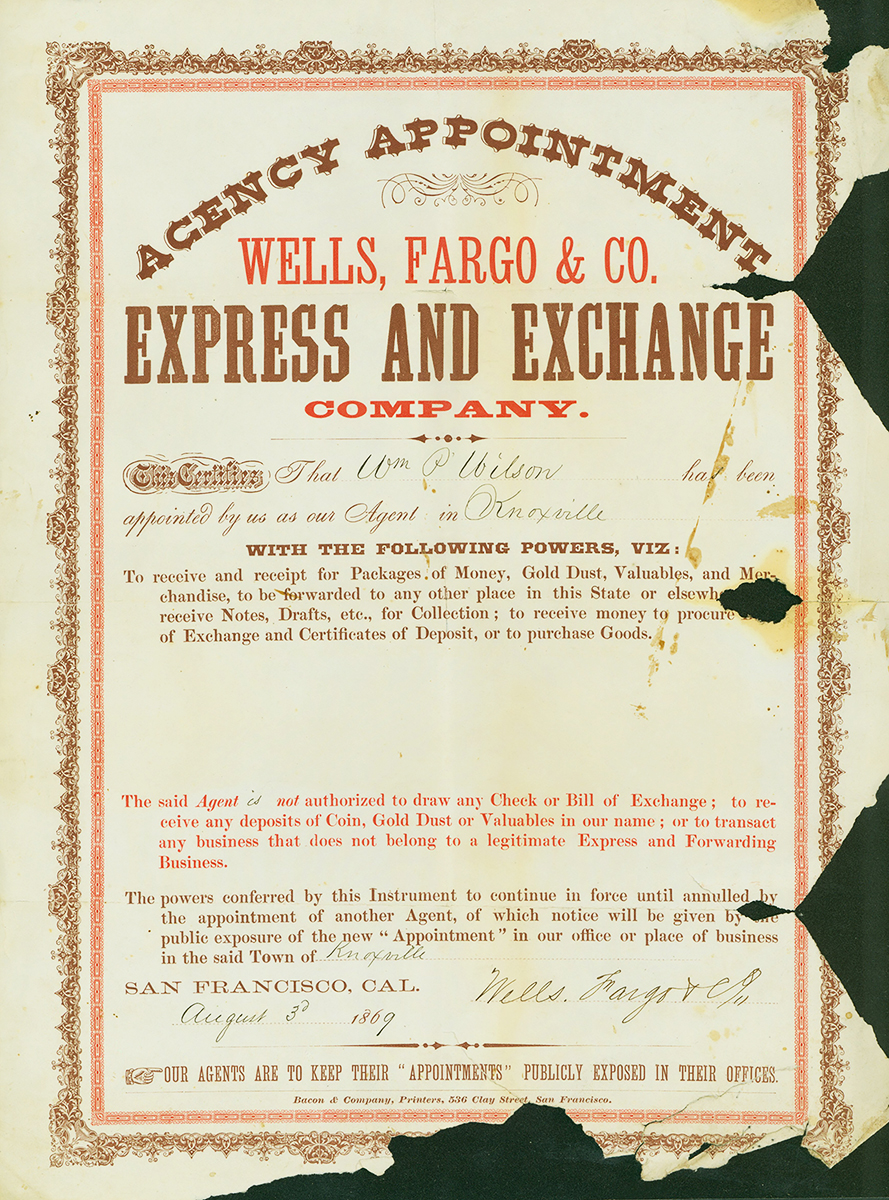 AGENCY APPOINTMENT
WELLS, FARGO & CO.
EXPRESS AND EXCHANGE
COMPANY.
This Certifies That Wm P Wilson has been
appointed by us as our Agent in Knoxville
WITH THE FOLLOWING POWERS, VIZ:
To receive and receipt for Packages of Money, Gold Dust, Valuables, and Mer-
chandise, to be forwarded to any other place in this State or
receive Notes, Drafts, etc., for Collection; to receive money to procure
of Exchange and Certificates of Deposit, or to purchase Goods.
The said Agent is not authorized to draw any Check or Bill of Exchange; to re-
ceive any deposits of Coin, Gold Dust or Valuables in our name; or to transact
any business that does not belong to a legitimate Express and Forwarding
Business.
The powers conferred by this Instrument to continue in force until annulled by
the appointment of another Agent, of which notice will be given by the
public exposure of the new "Appointment" in our office or place of business
in the said Town of Knoxville
SAN FRANCISCO, CAL. Wells. Fargo & Co
August 3d 1869
OUR AGENTS ARE TO KEEP THEIR "APPOINTMENTS" PUBLICLY EXPOSED IN THEIR OFFICES.
Bacon & Company, Printers, 536 Clay Street, San Francisco.